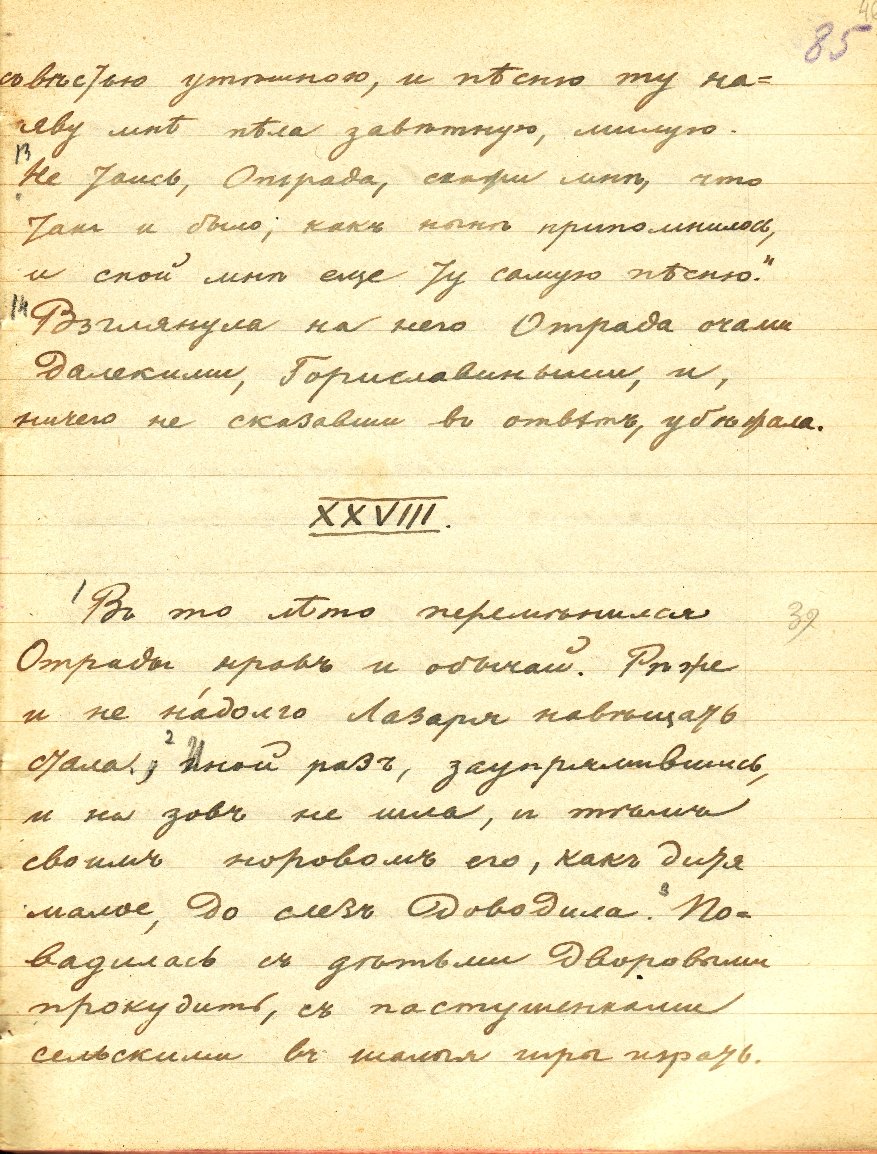 46
85
совѣстью утѣшною, и пѣсню ту на=
яву мнѣ пѣла завѣтную, милую.
13 Не таись, Отрада, скажи мнѣ, что
такъ и было, какъ нынѣ припомнилось,
и спой мнѣ еще ту самую пѣсню."
14 Взглянула на него Отрада очами
далекими, Гориславиными, и,
ничего не сказавши въ отвѣтъ, убѣжала.
XXVIII.
1 Въ то лѣто перемѣнился
39
Отрады нравъ и обычай. Рѣже
и не на́долго Лазаря навѣщать
стала; 2 иной разъ, заупрямившись,
и на зовъ не шла, и тѣмъ
своимъ норовомъ его, какъ дитя
малое, до слезъ доводила. 3 По=
вадилась съ дѣтьми дворовыми
прокудить, съ пастушенками
сельскими въ шалыя игры играть.